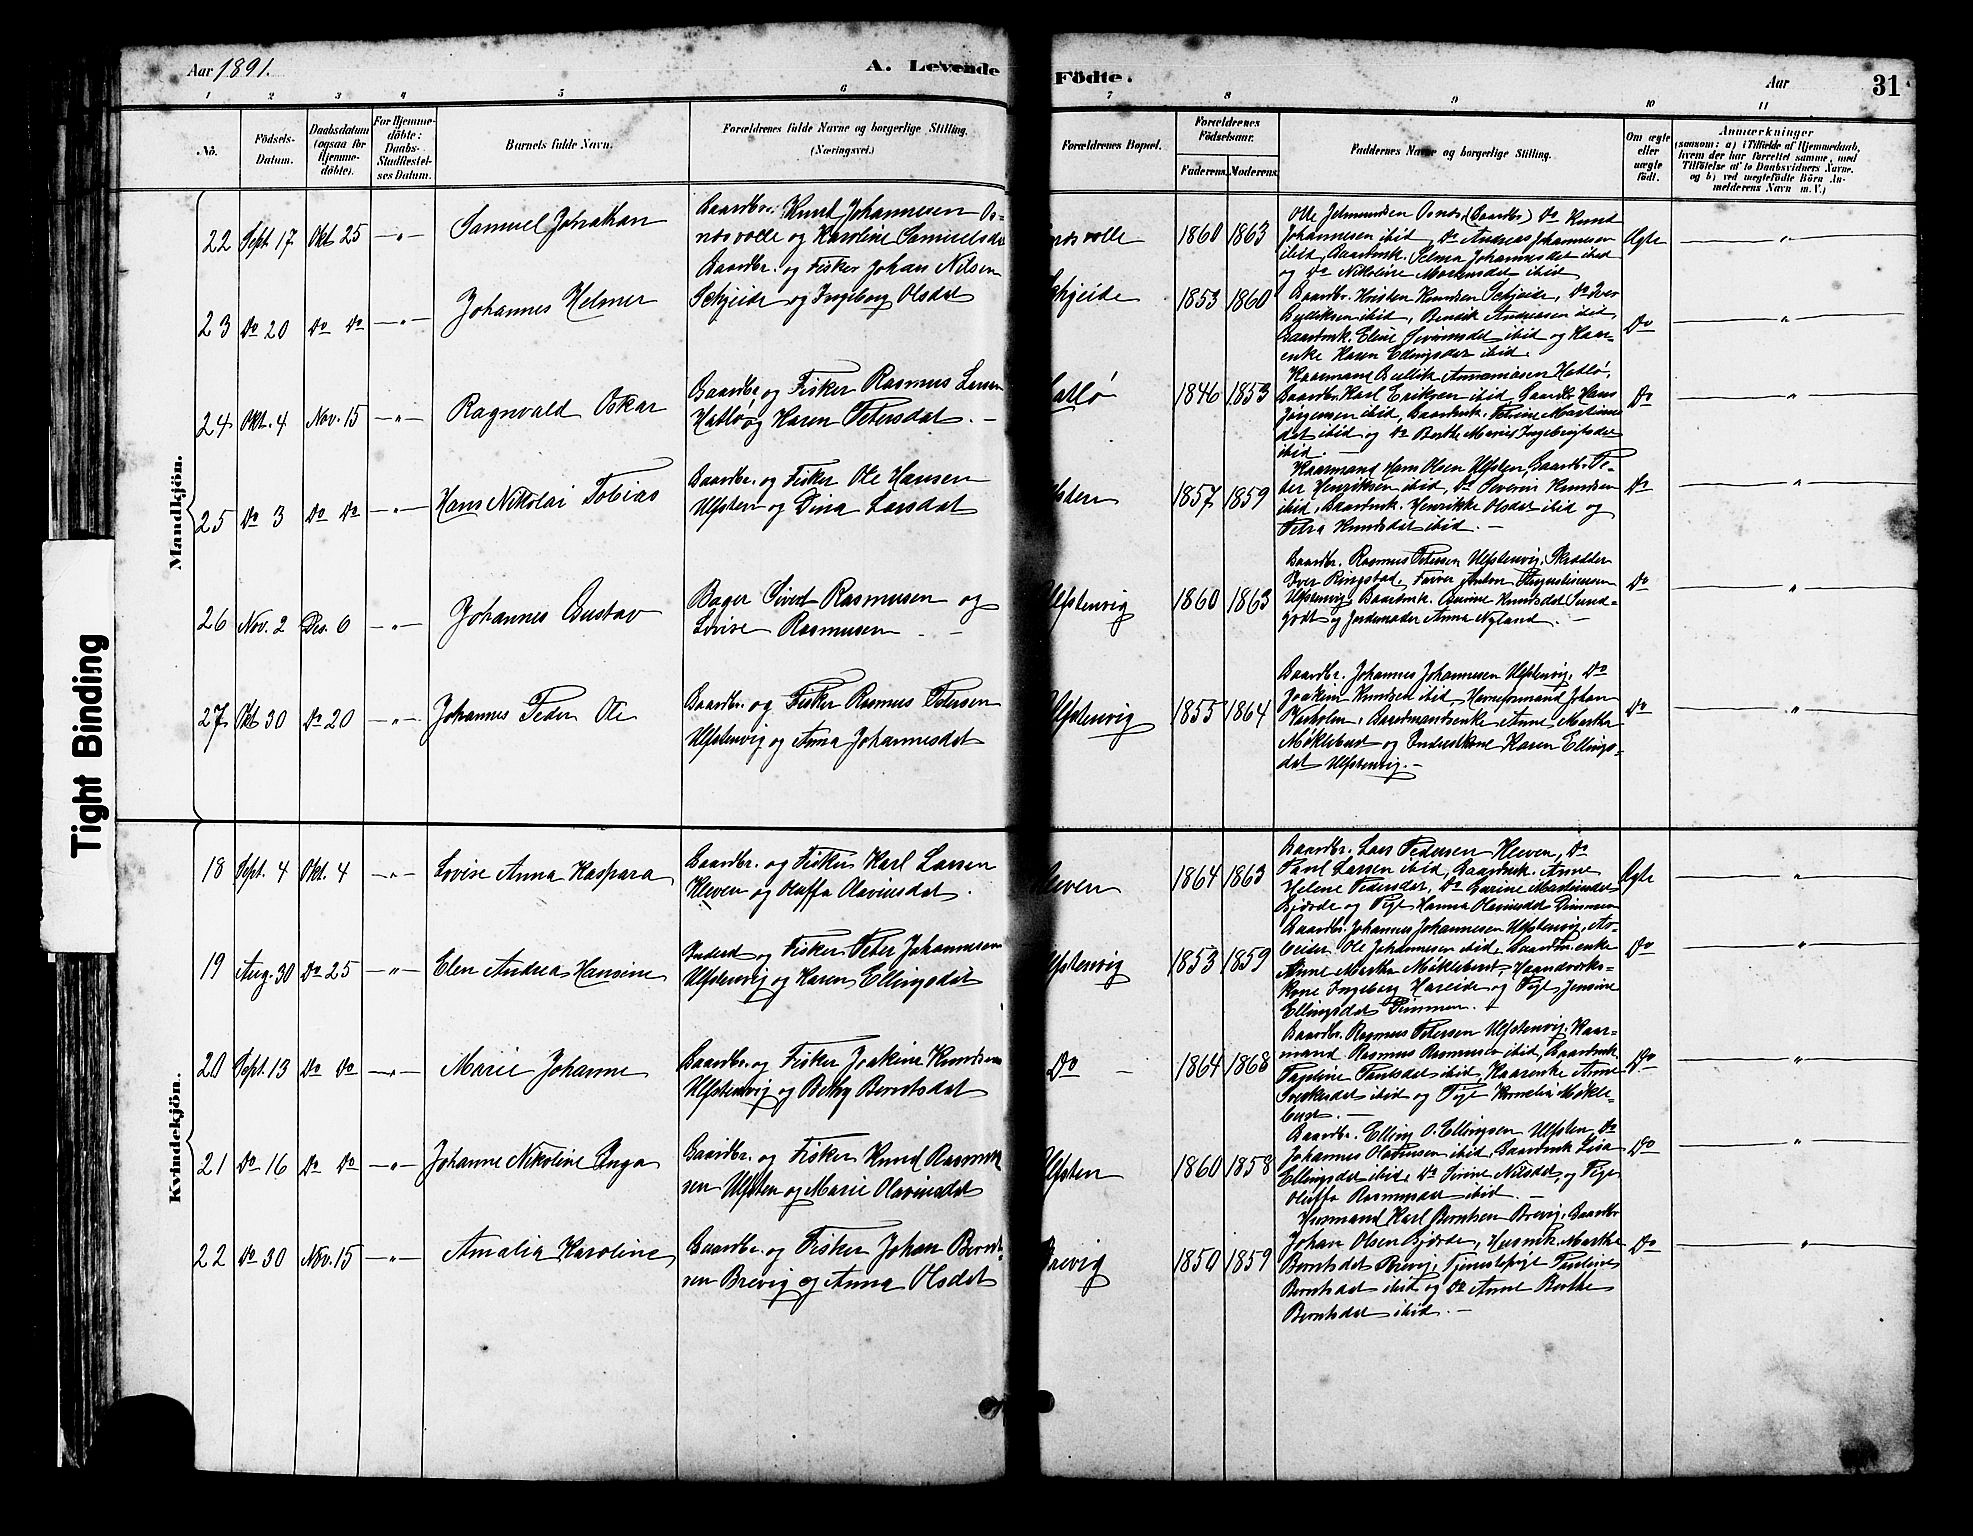 Aar 1891.
A. Levende
Födte.
Aar
31
1 2 3 4 5 6 7 8 9 10 11
No.
Födsels-
Datum.
Daabsdatum
(ogsaa for
Hjemme-
döbte).
For Hjemme-
döbte:
Daabs-
Stadfæstel-
ses Datum.
Barnets fulde Navn.
Forældrenes fulde Navne og borgerlige Stilling.
(Næringsvei.)
Forældrenes Bopæl.
Forældrenes
Födselsaar.
Faderens. Moderens.
Faddernes Navne og borgerlige Stilling.
Om ægte
eller
uægte
födt.
Anmærkninger
(saasom: a) i Tilfælde af Hjemmedaab,
hvem der har forrettet samme, med
Tilföielse af to Daabsvidners Navne,
og b) ved uægtefödte Börn An-
melderens Navn m. V.)
Mandkjön.
22 Sept 17 Okt 25 " Samuel Jonathan
Gaardbr. Knud Johannesen Os-
næsvolle og Karoline Samuelsdt
næsvolle 1860 1863
Olle Jetmundsen Osnæs (Gaardbr) Do Knud
Johannesen ibid, Do Andreas Johannesen
ibid, Gaardmk. Selma Johannesdet ibid
og Do Nikoline Mortensdet ibid
Ægte "
23 Do 20 Do Do " Johannes Helmer
Gaardbr. og Fisker Johan Nilsen
Schjeide og Ingeborg Olsdat
chjeide 1853 1860
Gaardbr. Kristen Knudsen Schjeide, Do Iver
ibid, Bendik Andreasen ibid,
Gaardmk. Eline Severinsdet ibid og Kaar-
enke Karen Ellingsdet ibid.
Do "
24 Okt. 4 Nov. 15 " Ragnvald Oskar
Gaardbr og Fisker Rasmus Larsen
Hatlø og Karen Petersdat. -
atlø 1846 1853
Kaarmand Hatlø,
Gaardbr Karl Eriksen ibid, Gaardb. Hans
Jørgensen ibid, Gaardmk. Petrine Martinus
dat ibid og Do Berthe Marie Ingebrigtsdet
ibid. -
Do "
25 Do 3 Do Do " Hans Nikolai Tobias
Gaardbr. og Fisker Ole Hansen
Ulfsten og Dina Larsdat
lfsten 1857 1859
Kaarmand Hans Olsen Ulfsten, Gaardbr. Pe-
der Henriksen ibid, Do Severin Knudsen
ibid, Gaardmk. Henrikke Olsdat ibid og
Petra Knudsdat ibid. -
Do "
26 Nov. 2 Des. 6 " Johannes Gustav
Bager Sivert Rasmusen og
Lovise Rasmusen. -
Ulfstenvig 1860 1863
Gaardbr. Rasmus Petersen Ulfstenvig, Skrædder
Iver Ringstad, Farver Anton Augustinusen
Ulfstenvig, Gaardmk. Knudsdat Sund-
godt og Jordemoder Anna Nyland. -
Do "
27 Okt 30 Do 20 " Johannes Peder Ole
Gaardbr. og Fisker Rasmus Petersen
Ulfstenvig og Anna Johannesdat
Ulfstenvig 1855 1864
Gaardbr. Johannes Johannesen Ulfstenvig, Do
Joakim Knudsen ibid, Havneformand Johan
Gaardmandsenke Anne Martha
Møklebust og Inderstkone Karen Ellings-
dat Ulfstenvig. -
Do "
Kvindekjön.
18 Sept. 4 Okt. 4 " Lovise Anna Kaspara
Gaardbr. og Fisker Karl Larsen
Kleven og Oluffa Olavinsdat.
leven 1864 1863
Gaardbr. Lars Pedersen Kleven, Do
Paul Larsen ibid, Gaardmk. Anne
Helene Pedersdat, Do Martinsdat
Gjørde og Pige Hanna Olavinsdat Dimmen
Ægte "
19 Aug. 30 Do 25 " Elen Andrea Hansine
Inderst og Fisker Peter Johannesen
Ulfstenvig og Karen Ellingsdat
lfstenvig 1853 1859
Gaardbr. Johannes Johannesen Ulfstenvig, Ar-
beider Ole Johannesen ibid, Gaardm.enke
Anne Martha Møklebust, Haandverks-
kone Ingeborg Hareide og Pige Jensine
Ellingsdat Dimmen. -
Do "
20 Sept. 13 Do Do " Marie Johanne
Gaardbr. og Fisker Joakim Knudsen
Ulfstenvig og Bethy Berntsdat
Do - 1864 1868
Gaardbr. Rasmus Petersen Ulfstenvig, Kaar-
mand Rasmus Rasmusen ibid, Gaardmk.
Paulsdat ibid, Kaarenke Anne
ibid og Pige Kornelia Møkle-
bust. -
Do "
21 Do 16 Do Do " Johanne Nikoline Inga
Gaardbr. og Fisker Knud Rasmu-
sen Ulfsten og Marie Olavinsdat
Ulfsten 1860 1858
Gaardbr. Elling O. Ellingsen Ulfsten, Do
Johannes ibid, Gaardmk. Lisa
Ellingsdat ibid, Do Nilsdat, og Pige
Oluffa Rasmusdat ibid. -
Do "
22 Do 30 Nov. 15 " Amalia Karoline
Gaardbr. og Fisker Johan Bernt-
sen Brevig og Anna Olsdat
revig 1850 1859
Husmand Karl Berntsen Brevig, Gaardbr
Johan Olsen Gjørde, Husmk. Martha
Berntsdat Brevig, Tjenestepige Pauline
Berntsdat ibid og Do Anne Berthe
Berntsdat ibid. -
Do "
Tight Binding